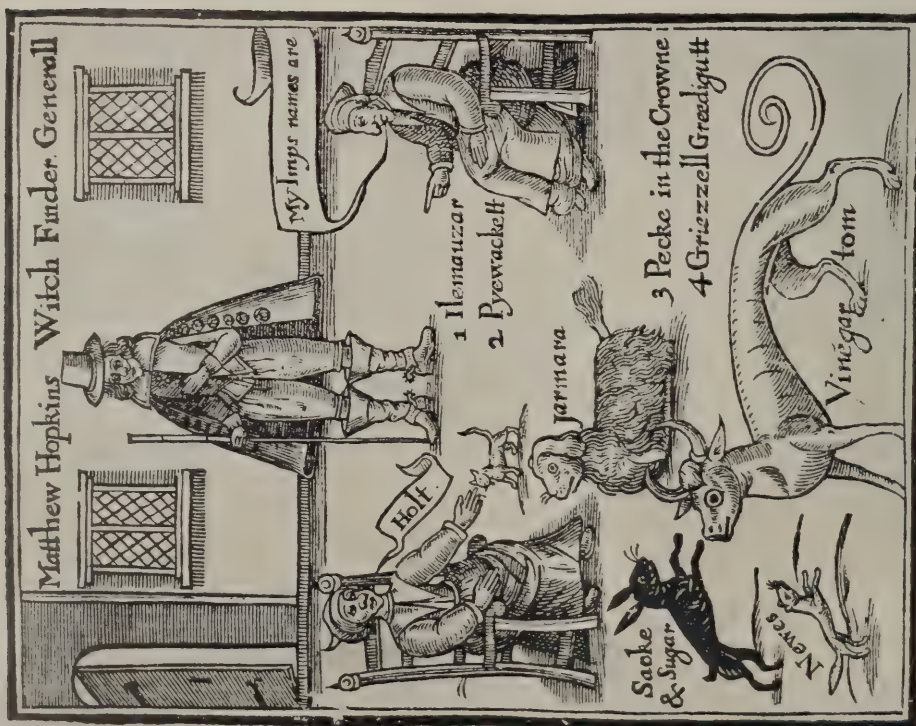 Matthew Hopkins Witch Finder Generall
My Imps names are
1 Ilemauzar
2 Pyewackett
3 Pecke in the Crowne
4 Griezzell Greedigutt
Holt.
Jarmara
Sacke
& Sugar
Newes
Vinegar tom